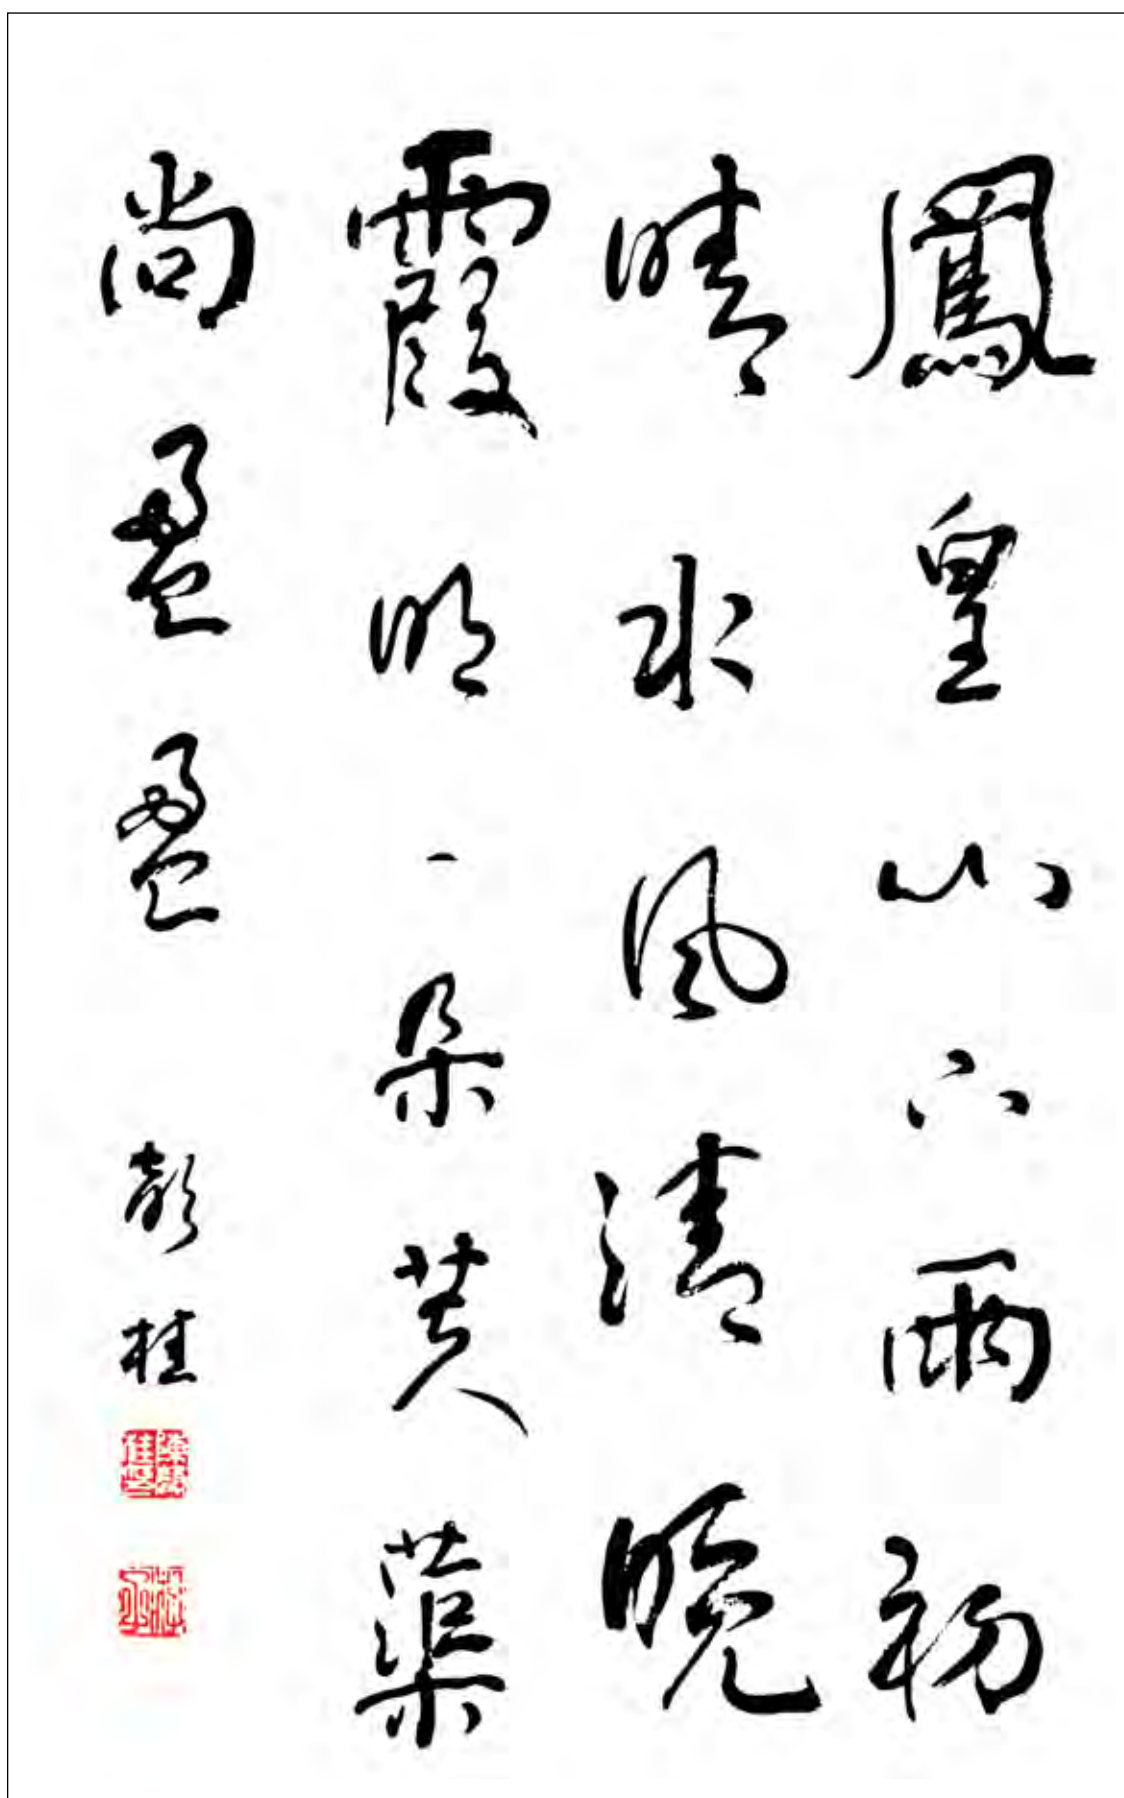 鳳皇山下雨初
晴水風清晚
霞明一朵芙蕖
尚盈盈
彭桂